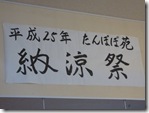 平成25年 たんぽぽ苑
納涼祭